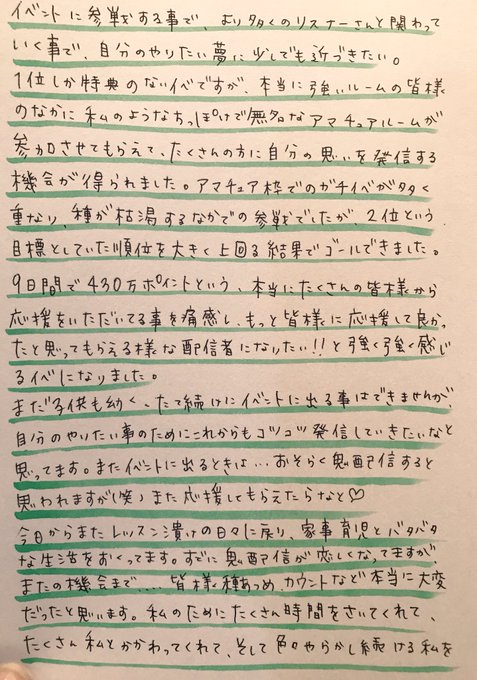 イベントに参戦する事で、より多くのリスナーさんと関わって
いく事で、自分のやりたい夢に少しでも近づきたい。
1位しか特典のないイベですが、本当に強いルームの皆様
のなかに私のようなちっぽけで無名なアマチュアルームが
参加させてもらえて、たくさんの方に自分の思いを発信する
機会が得られました。アマチュア枠でのガチイベが多く
重なり、種が枯渇するなかでの参戦でしたが、2位という
目標としていた順位を大きく上回る結果でゴールできました。
9日間で430万ポイントという、本当にたくさんの皆様から
応援をいただいてる事を痛感し、もっと皆様に応援して良かっ
たと思ってもらえる様な配信者になりたい!!と強く強く感じ
るイベになりました。
まだ子供も幼く、たて続けにイベントに出る事はできませんが
自分のやりたい事のためにこれからもコツコツ発信していきたいなと
思ってます。またイベントに出るときは…おそらく鬼配信すると
思われますが(笑)また応援してもらえたらなと♡
今日からまたレッスン漬けの日々に戻り、家事育児とバタバタ
な生活をおくってます。すでに鬼配信が恋しくなってますが、
またの機会まで....皆様、種あつめ、カウントなど本当に大変
だったと思います。私のためにたくさん時間をさいてくれて、
たくさん私とかかわってくれて、そして色々やらかし続ける私を